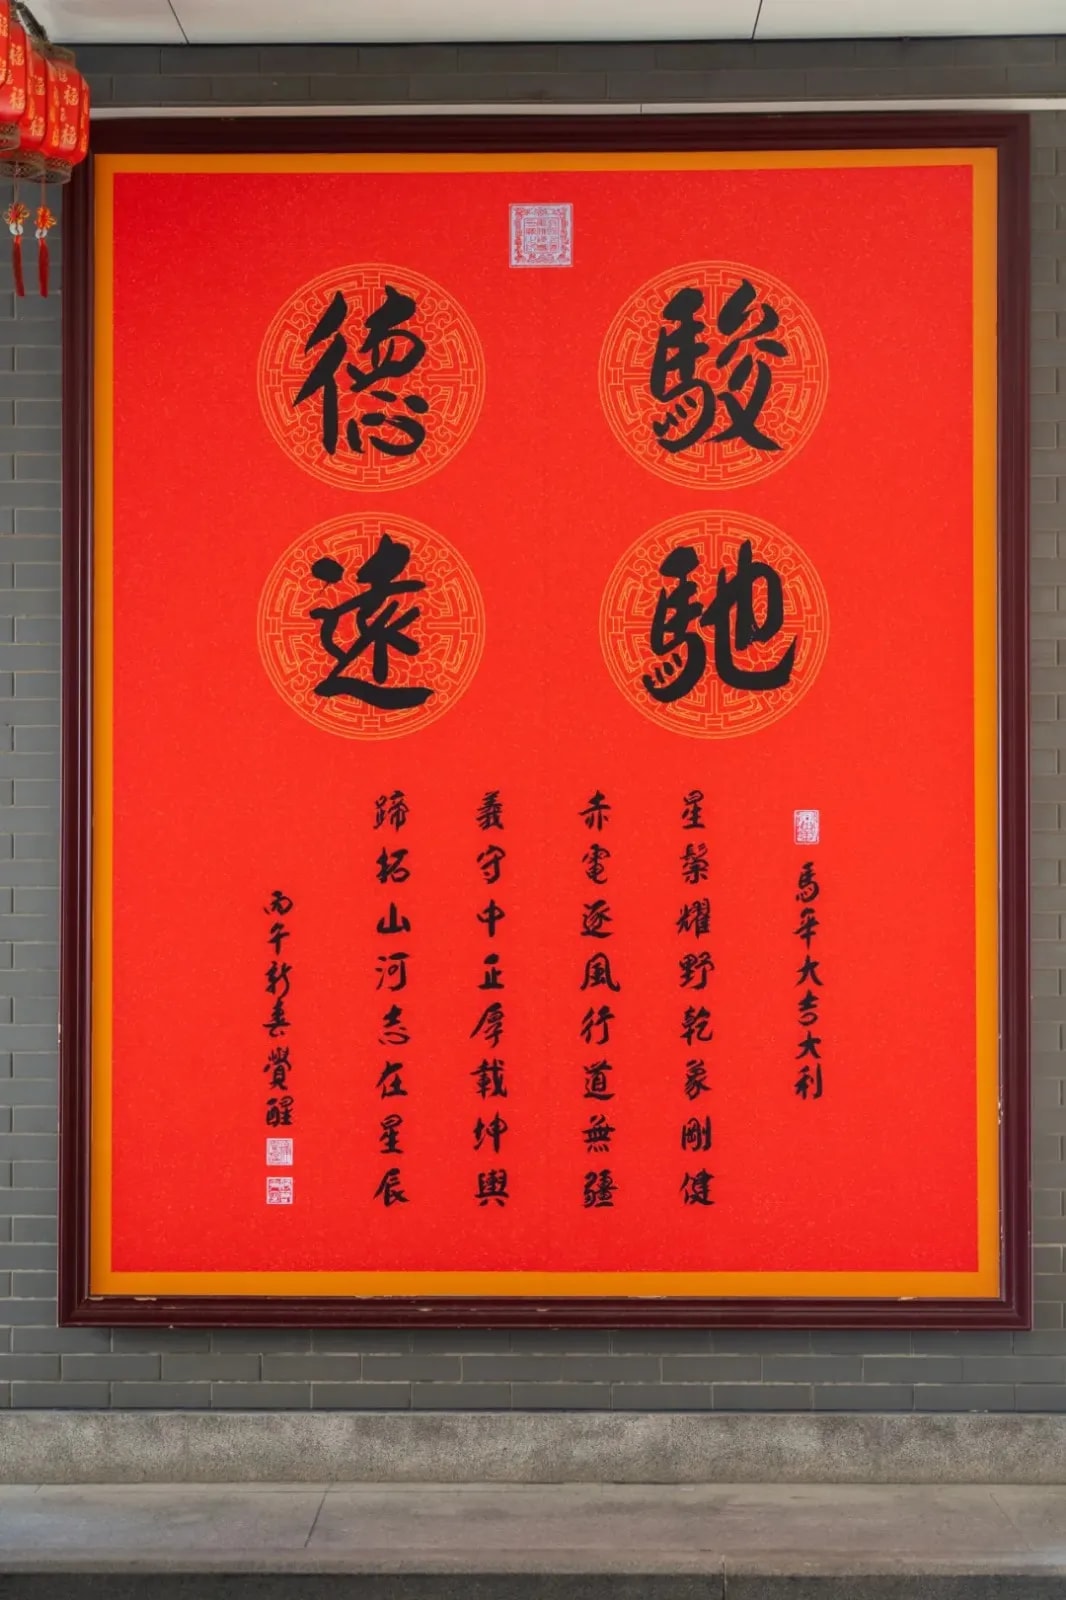 駿馳
德遠
馬年大吉大利
星鬃耀野乾象剛健
赤電逐風行道無疆
義守中正厚載坤輿
蹄拓山河志在星辰
丙午新春覺醒
福
福
福
福